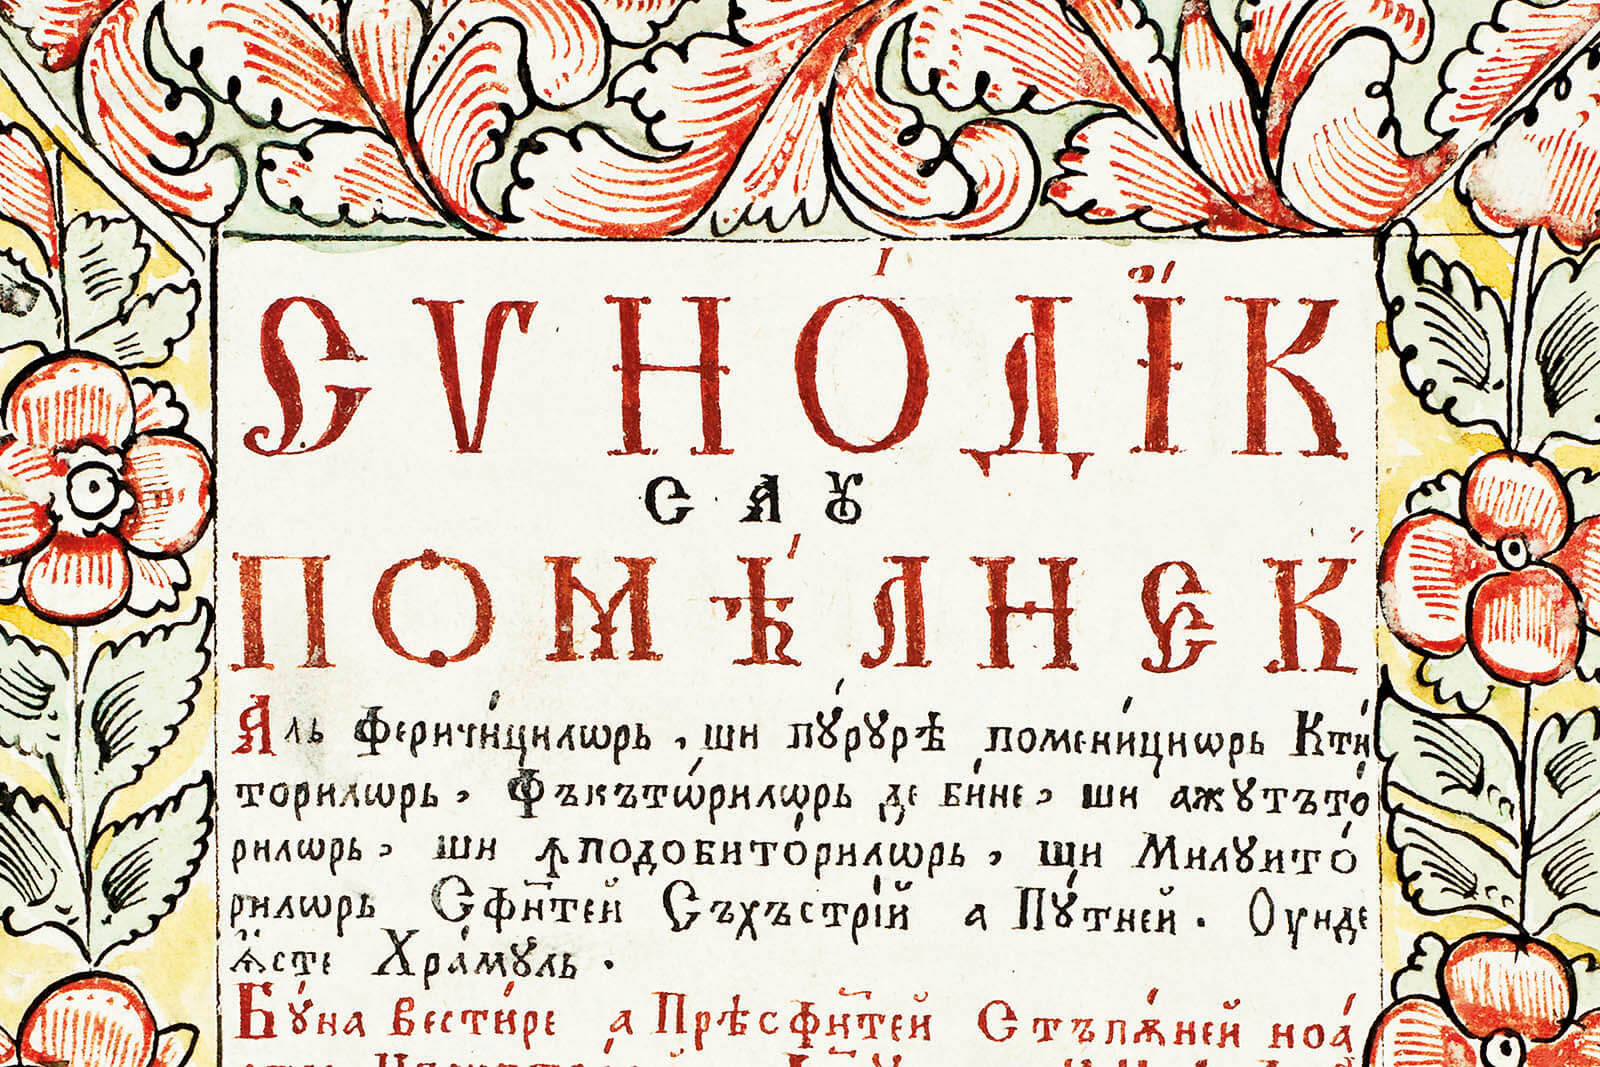 СѴНО́ДЇК
САꙋ
ПОМѢ́ЛНЕК
Аль Феричи́цилѡрь, ши пꙋ́рꙋрѣ помени́циѡрь Кти́
торилѡрь, Фъкътѡ́рилѡрь де би́не, ши ажꙋтъто́
рилѡрь, ши ꙟподобито́рилѡрь, ши Милꙋито́
рилѡрь Сфи́нтей Съхъстрі́й а Пꙋ́тней. Оунде
ꙗ҆́сте Хра́мꙋль.
Бꙋ́на вести́ре а Прѣсфи́нтей Стъпѫ́ней ноа́